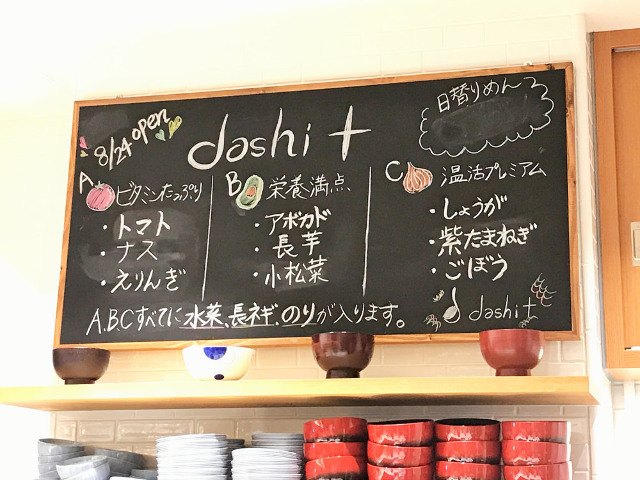 8/24 open
dashi+
日替りめん
A ビタミンたっぷり
・トマト
・ナス
・えりんぎ
B 栄養満点
・アボカド
・長芋
・小松菜
C 温活プレミアム
・しょうが
・紫たまねぎ
・ごぼう
A,B,Cすべてに水菜、長ネギ、のりが入ります。
dashi+